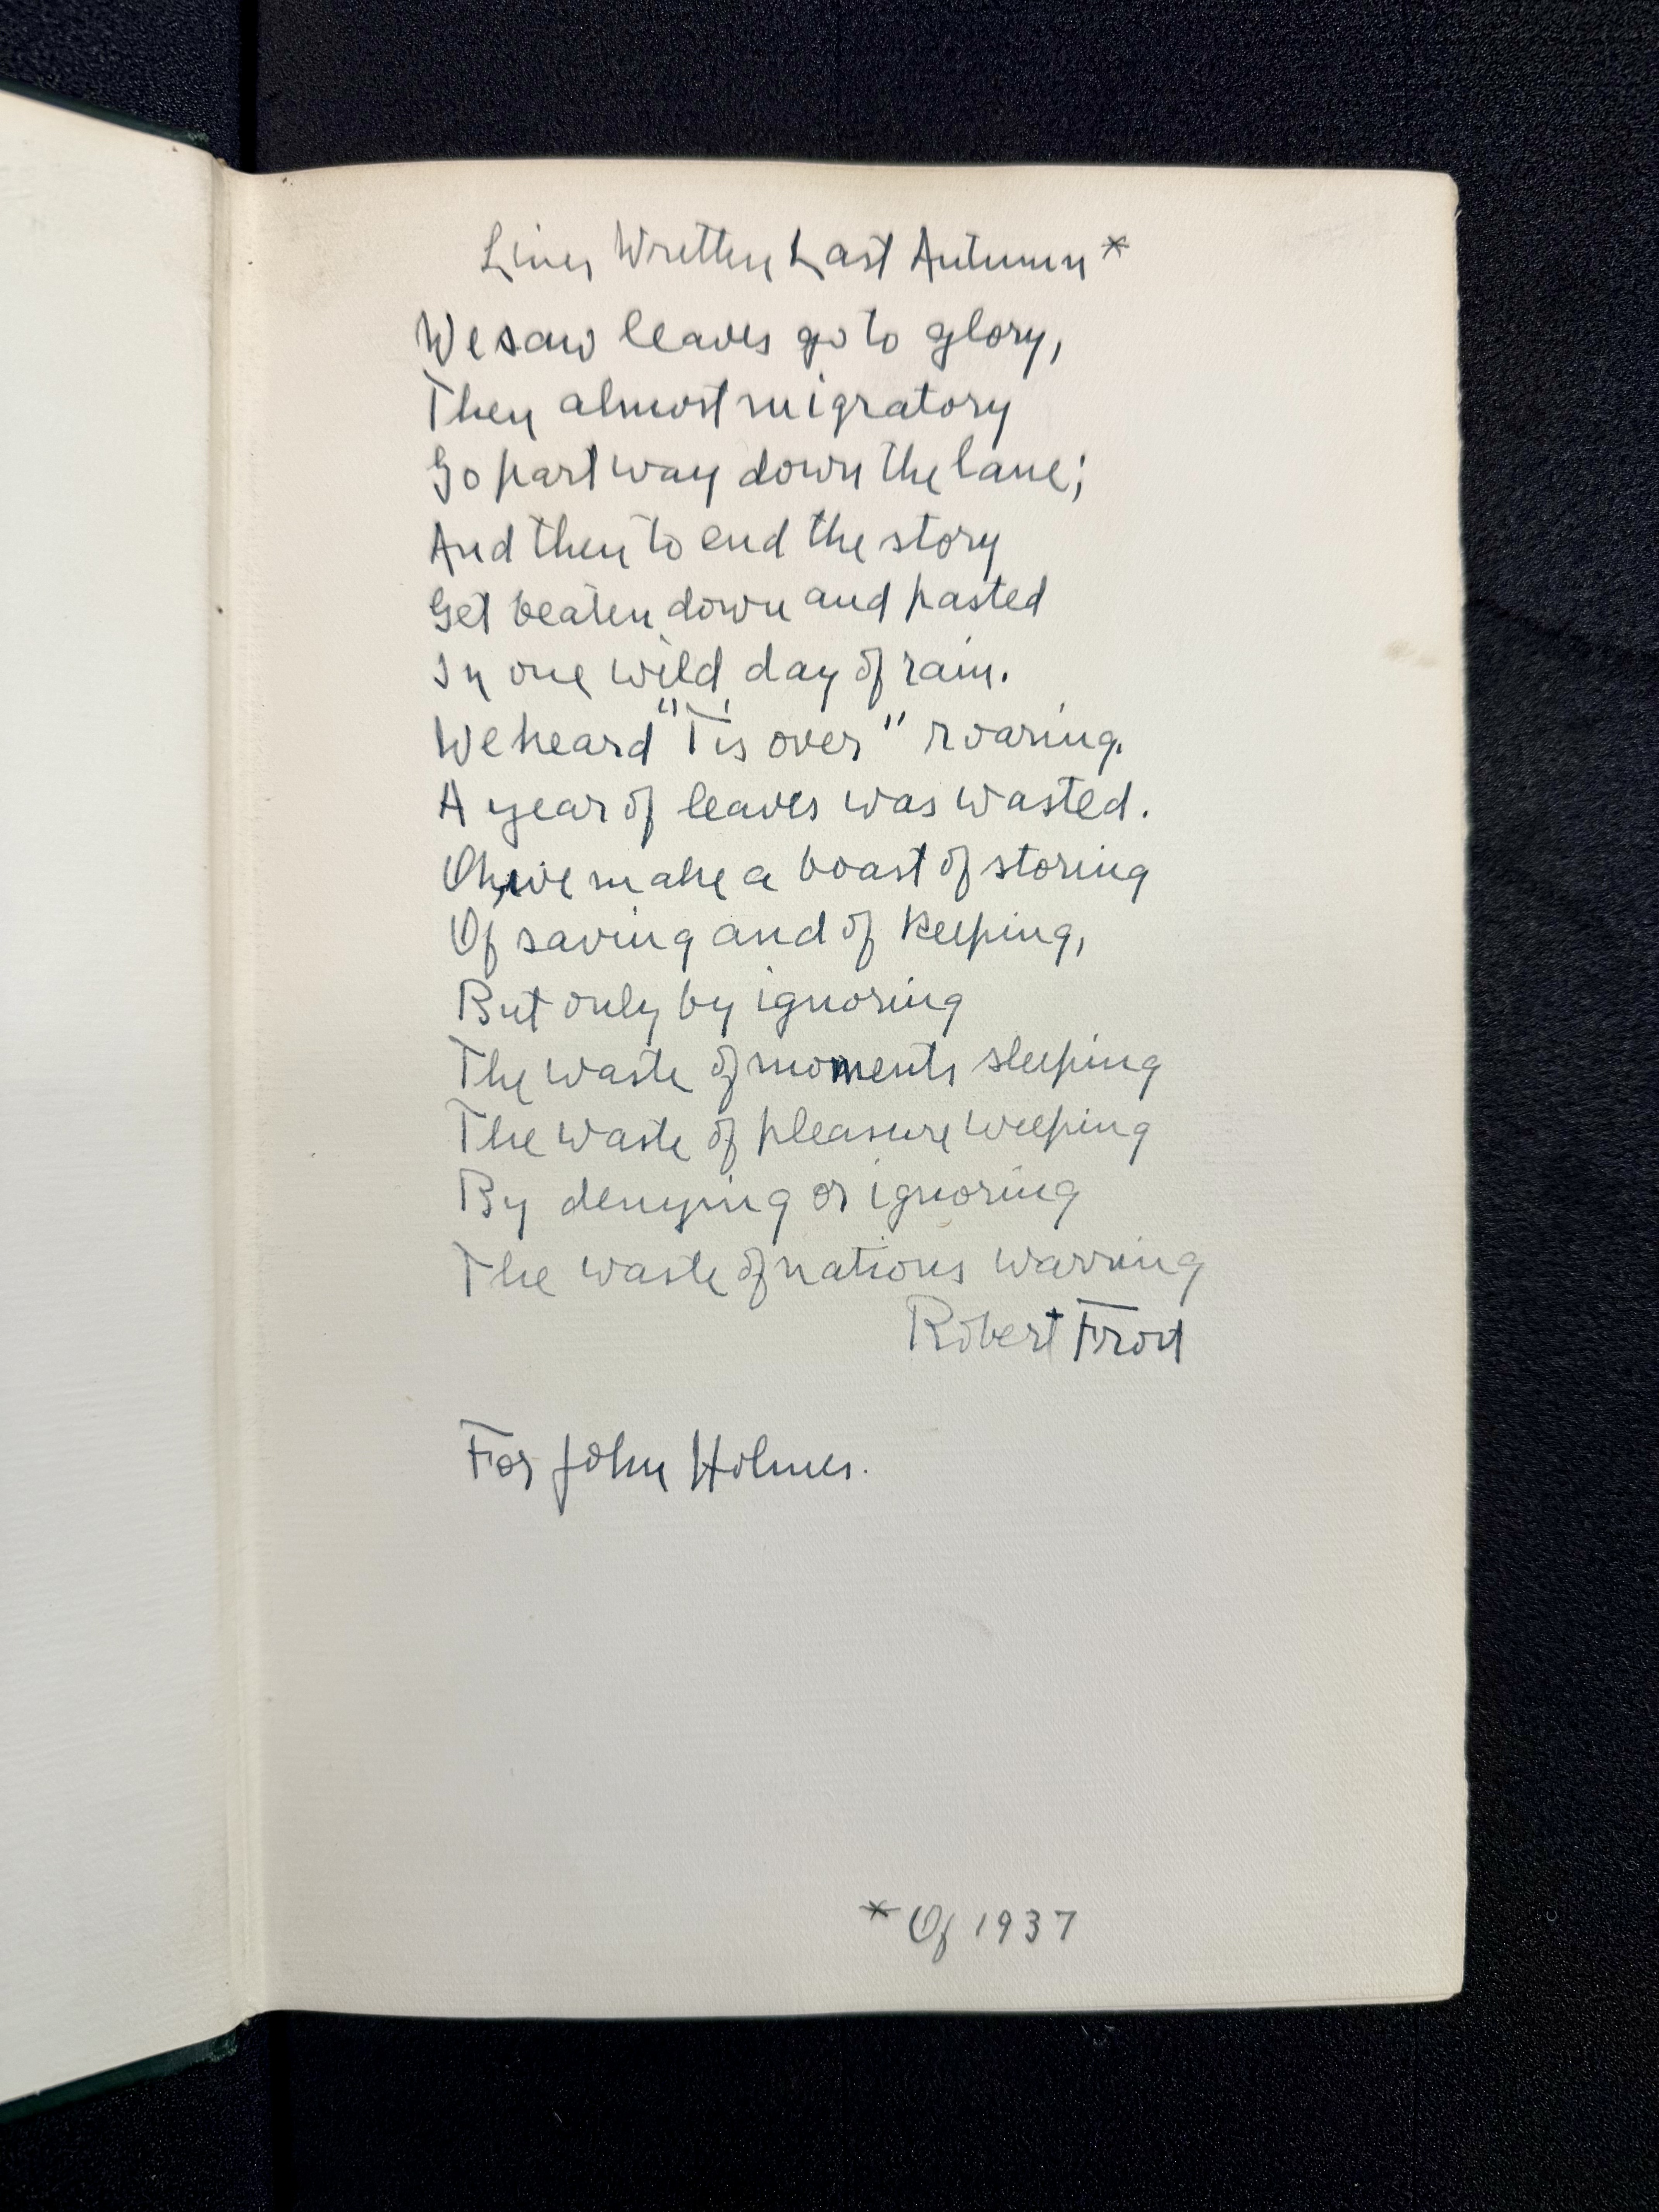 Lines Written Last Autumn*
We saw leaves go to glory,
Then almost migratory
Go part way down the lane;
And then to end the story
Get beaten down and pasted
In one wild day of rain.
We heard "'Tis over" roaring.
A year of leaves was wasted.
Oh, we make a boast of storing
Of saving and of keeping,
But only by ignoring
The waste of moments sleeping
The waste of pleasure weeping
By denying or ignoring
The waste of nations warring
Robert Frost
For John Holmes.
* Of 1937